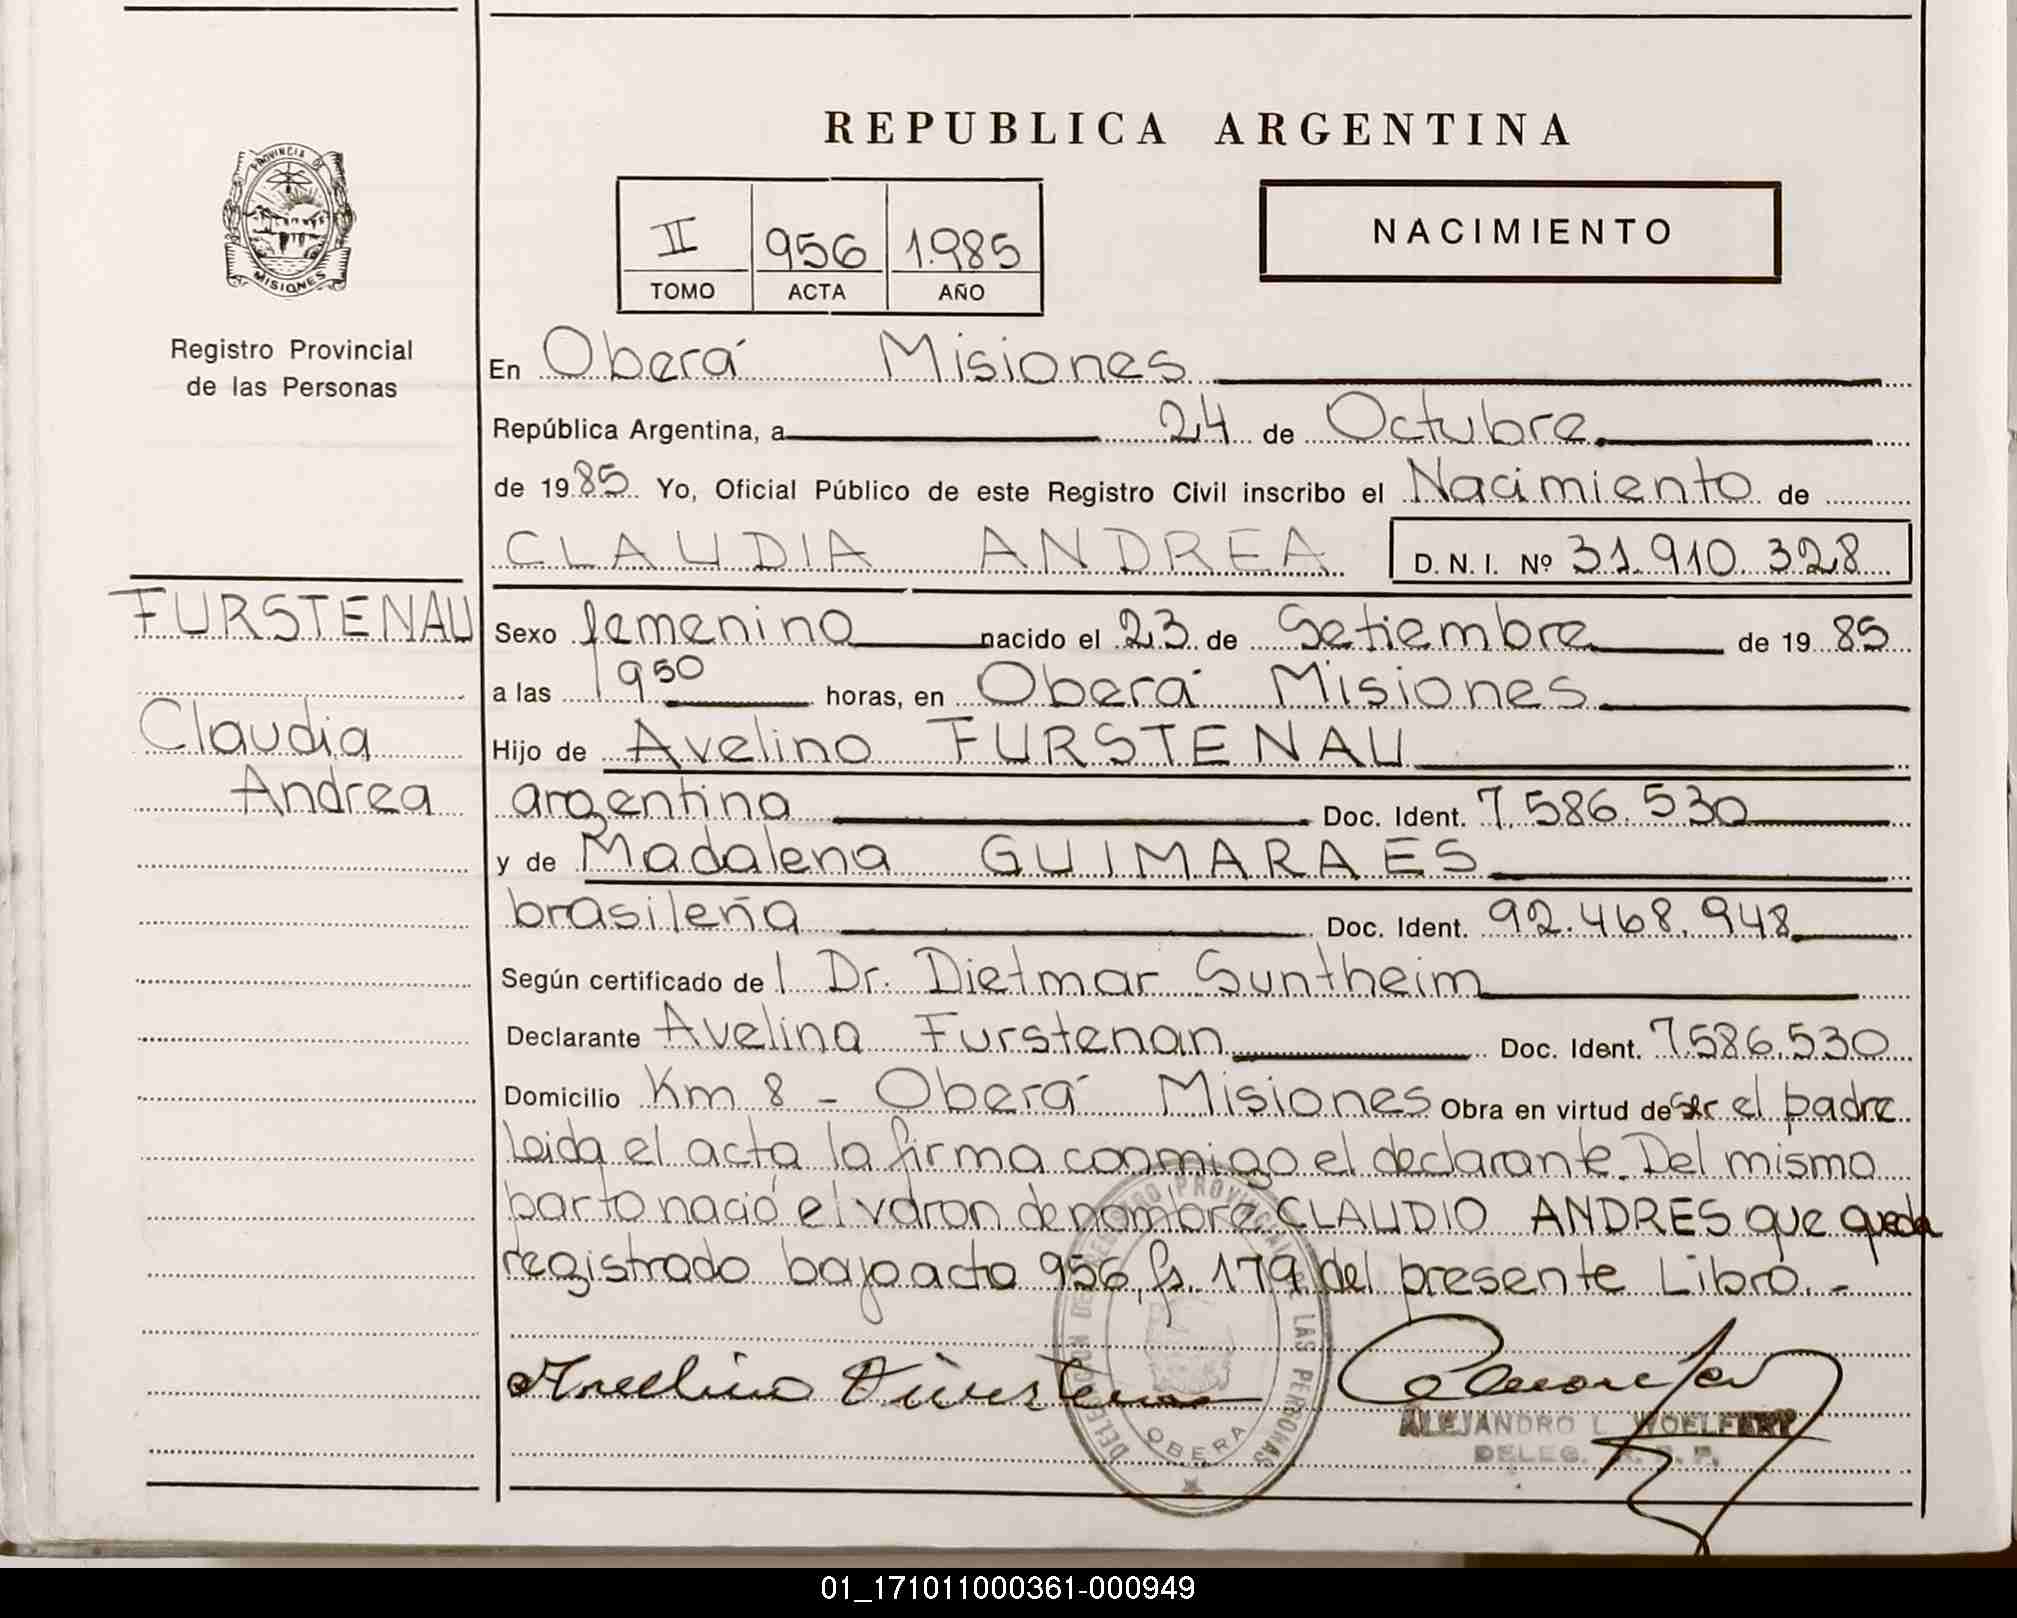 REPUBLICA ARGENTINA
PROVINCIA DE
MISIONES
Registro Provincial
de las Personas
II 956 1.985
TOMO ACTA AÑO
NACIMIENTO
En Oberá Misiones
República Argentina, a 24 de Octubre
de 1985 Yo, Oficial Público de este Registro Civil inscribo el Nacimiento de
CLAUDIA ANDREA D. N. I. Nº 31.910.328
FURSTENAU
Claudia
Andrea
Sexo femenino nacido el 23 de Setiembre de 1985
a las 1950 horas, en Oberá Misiones
Hijo de Avelino FURSTENAU
argentino Doc. Ident. 7.586.530
y de Madalena GUIMARAES
brasileña Doc. Ident. 92.468.948
Según certificado de l Dr. Dietmar Suntheim
Declarante Avelino Furstenan Doc. Ident. 7.586.530
Domicilio Km 8 - Oberá Misiones Obra en virtud de ser el padre
Leida el acta la firma conmigo el declarante. Del mismo
parto nació el varon de nombre CLAUDIO ANDRES que queda
registrado bajo acta 956, fs. 179 del presente Libro.-
Avelino Fürstenau
DELEGACION DE REGISTRO PROVINCIAL DE LAS PERSONAS
OBERA
ALEJANDRO L. WOELFERT
DELEG. R. P. P.
01_171011000361-000949